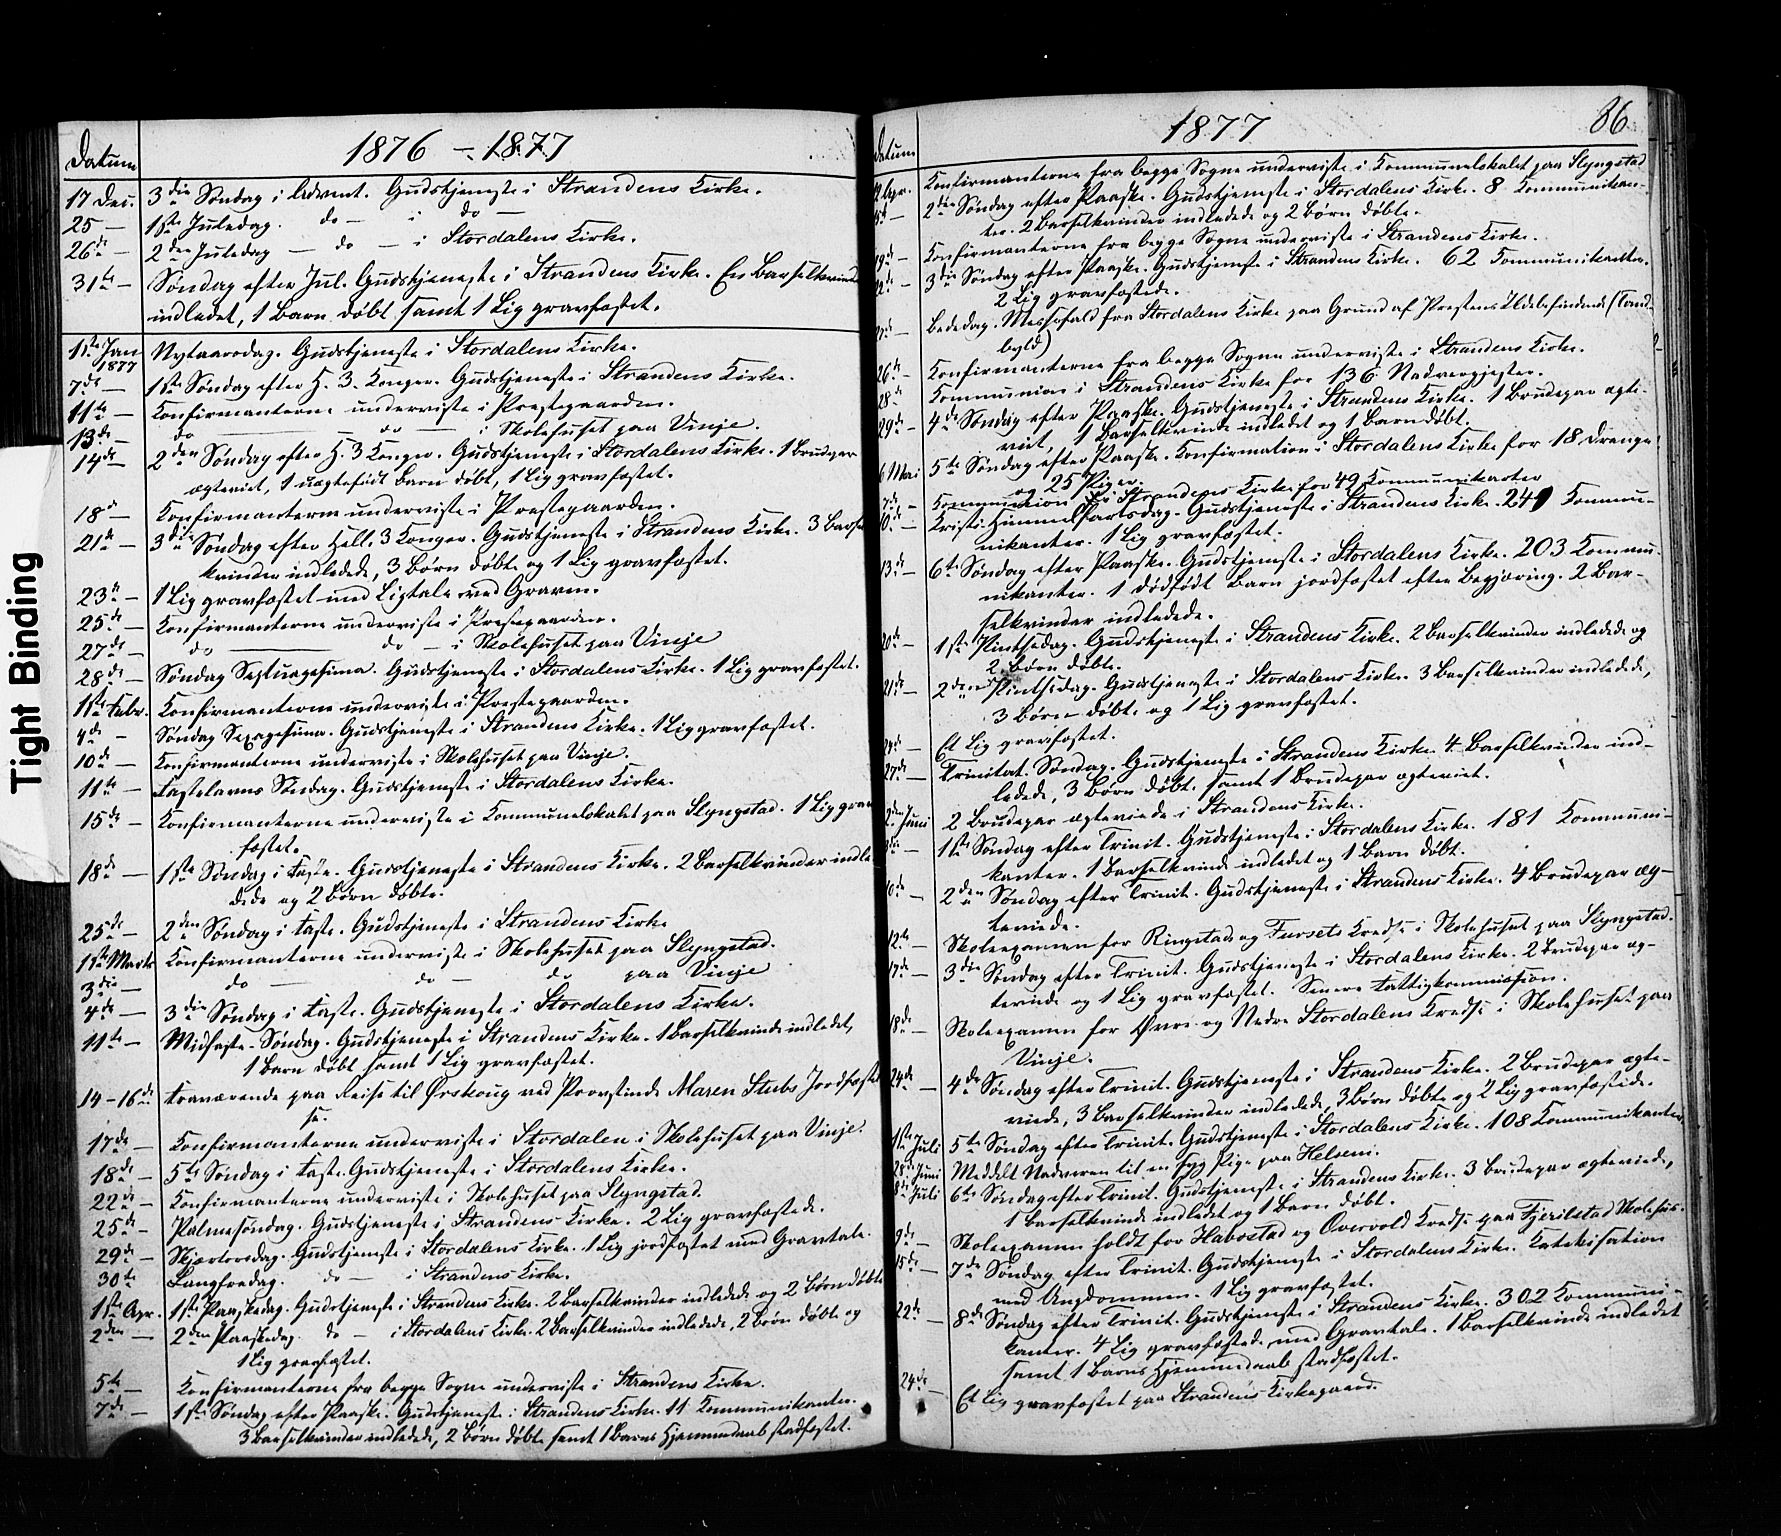 Tight Binding
Datum
1876 – 1877
17 Dec. 3die Søndag i Advent. Gudstjeneste i Strandens Kirke.
25 — 1ste Juledag. do — i do —
26de — 2den Juledag — do — i Stordalens Kirke.
31te — Søndag efter Jul. Gudstjeneste i Strandens Kirke. En Barselkvinde
indledet, 1 Barn døbt samt 1 Lig gravfæstet.
1ste Jan 1877 Nytaarsdag. Gudstjeneste i Stordalens Kirke.
7de — 1ste Søndag efter H. 3. Konger. Gudstjeneste i Strandens Kirke.
11te — Konfirmanterne underviste i Prestegaarden.
13de — do — do — i Skolehuset paa Vinje.
14de — 2den Søndag efter H. 3 Konger. Gudstjeneste i Stordalens Kirke. 1 Brudepar
ægteviet, 1 uægtefødt Barn døbt, 1 Lig gravfæstet.
18de — Konfirmanterne underviste i Prestegaarden.
21de — 3die Søndag efter Hell. 3 Konger. Gudstjeneste i Strandens Kirke. 3 Barsel
kvinder indledede, 3 Børn døbte og 1 Lig gravfæstet.
23de — 1 Lig gravfæstet med Ligtale ved Graven.
25de — Konfirmanterne underviste i Prestegaarden.
27de — do — do — i Skolehuset paa Vinje
28de — Søndag Septuagesima. Gudstjeneste i Stordalens Kirke. 1 Lig gravfæstet.
1ste Febr. Konfirmanterne underviste i Prestegaarden.
4de — Søndag Sexagesima. Gudstjeneste i Strandens Kirke. 1 Lig gravfæstet.
10de — Konfirmanterne underviste i Skolehuset paa Vinje.
11te — Fastelavns Søndag. Gudstjeneste i Stordalens Kirke.
15de — Konfirmanterne underviste i Kommunelokalet paa Slyngstad. 1 Lig grav
fæstet.
18de — 1ste Søndag i Faste. Gudstjeneste i Strandens Kirke. 2 Barselkvinder indle
dede og 2 Børn døbte.
25de — 2den Søndag i Faste. Gudstjeneste i Strandens Kirke
1ste Marts Konfirmanterne underviste i Skolehuset paa Slyngstad.
3die — do — do — do paa Vinje
4de — 3die Søndag i Faste. Gudstjeneste i Stordalens Kirke.
11te — Midfaste-Søndag. Gudstjeneste i Strandens Kirke. 1 Barselkvinde indledet,
1 Barn døbt samt 1 Lig gravfæstet.
14–16de Fraværende paa Reise til Ørskoug ved Provstinde Maren Stubs Jordfæstel
se.
17de — Konfirmanterne underviste i Stordalen i Skolehuset paa Vinje.
18de — 5te Søndag i Faste. Gudstjeneste i Stordalens Kirke.
22de — Konfirmanterne underviste i Skolehuset paa Slyngstad.
25de — Palmesøndag. Gudstjeneste i Strandens Kirke. 2 Lig gravfæstede.
29de — Skjærtorsdag. Gudstjeneste i Stordalens Kirke. 1 Lig jordfæstet med Gravtale.
30te — Langfredag. do — i Strandens Kirke.
1ste Apr. 1ste Paaskedag. Gudstjeneste i Strandens Kirke. 2 Barselkvinder indledede og 2 Børn døbte
2den — 2den Paaskedag. do — i Stordalens Kirke. 2 Barselkvinder indledede, 2 Børn døbte og
1 Lig gravfæstet.
5te — Konfirmanterne fra begge Sogne underviste i Strandens Kirke.
7de — 1ste Søndag efter Paaske. Gudstjeneste i Strandens Kirke. 11 Kommunikanter.
3 Barselkvinder indledede, 2 Børn døbte samt 1 Barns Hjemmedaab stadfæstet.
Datum
1877
86
Apr. Konfirmanterne fra begge Sogne underviste i Kommunelokalet paa Slyngstad
2den Søndag efter Paaske. Gudstjeneste i Stordalens Kirke. 8 Kommunikan-
ter. 2 Barselkvinder indledede og 2 Børn døbte.
Konfirmanterne fra begge Sogne underviste i Strandens Kirke.
3die Søndag efter Paaske. Gudstjeneste i Strandens Kirke. 62 Kommunikanter.
2 Lig gravfæstede.
Bededag. Messefald fra Stordalens Kirke paa Grund af Prestens Ildebefindende (Tand-
byld)
26de Konfirmanterne fra begge Sogne underviste i Strandens Kirke.
28de Kommunion i Strandens Kirke for 136 Nadvergjester.
29de — 4de Søndag efter Paaske. Gudstjeneste i Strandens Kirke. 1 Brudepar ægte-
viet, 1 Barselkvinde indledet og 1 Barn døbt.
6 Mai 5te Søndag efter Paaske. Konfirmation i Stordalens Kirke for 18 Drenge
og 25 Piger.
7de — Kommunion i Strandens Kirke for 49 Kommunikanter
10de — Kristi Himmelfartsdag. Gudstjeneste i Strandens Kirke. 249 Kommu-
nikanter. 1 Lig gravfæstet.
13de — 6te Søndag efter Paaske. Gudstjeneste i Stordalens Kirke. 203 Kommu-
nikanter. 1 dødfødt Barn jordfæstet efter Begjæring. 2 Bar-
selkvinder indledede.
20de — 1ste Pintsedag. Gudstjeneste i Strandens Kirke. 2 Barselkvinder indledede og
2 Børn døbte.
21de — 2den Pintsedag. Gudstjeneste i Stordalens Kirke. 3 Barselkvinder indledede,
3 Børn døbte og 1 Lig gravfæstet.
Et Lig gravfæstet.
27de — Trinitat. Søndag. Gudstjeneste i Strandens Kirke. 4 Barselkvinder ind-
ledede, 3 Børn døbte samt 1 Brudepar ægteviet.
2den Juni 2 Brudepar ægteviede i Strandens Kirke.
1ste Søndag efter Trinit. Gudstjeneste i Stordalens Kirke. 181 Kommuni-
kanter. 1 Barselkvinde indledet og 1 Barn døbt.
10de — 2den Søndag efter Trinit. Gudstjeneste i Strandens Kirke. 4 Brudepar æg-
teviede.
12te — Skoleexamen for Ringstads og Fursets Kredse i Skolehuset paa Slyngstad.
17de — 3die Søndag efter Trinit. Gudstjeneste i Stordalens Kirke. 2 Brudepar æg-
teviede og 1 Lig gravfæstet. Senere Fattigkommission.
18de — Skoleexamen for Øvre og Nedre Stordalens Kredse i Skolehuset paa
Vinje.
24de — 4de Søndag efter Trinit. Gudstjeneste i Strandens Kirke. 2 Brudepar ægte-
viede, 3 Barselkvinder indledede, 3 Børn døbte og 2 Lig gravfæstede.
1ste Juli 5te Søndag efter Trinit. Gudstjeneste i Stordalens Kirke. 108 Kommunikanter
28de Juni Meddelt Nadveren til en syg Pige paa Helsem.
8de Juli 6te Søndag efter Trinit. Gudstjeneste i Strandens Kirke. 3 Brudepar ægteviede,
1 Barselkvinde indledet og 1 Barn døbt.
9de — Skoleexamen holdt for Habostad og Overvold Kredse paa Fjerilstad Skolehus.
15de — 7de Søndag efter Trinit. Gudstjeneste i Stordalens Kirke. Katekisation
med Ungdommen. 1 Lig gravfæstet.
22de — 8de Søndag efter Trinit. Gudstjeneste i Strandens Kirke. 302 Kommuni-
kanter. 4 Lig gravfæstede med Gravtale. 1 Barselkvinde indledet
samt 1 Barns Hjemmedaab stadfæstet.
24de — Et Lig gravfæstet paa Strandens Kirkegaard.